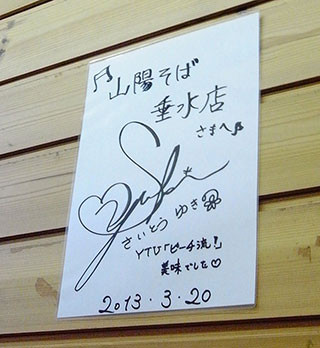 ♬山陽そば
垂水店
さまへ♬
さいとう ゆき
YTV「ピーチ流!」
美味でした♡
2013.3.20